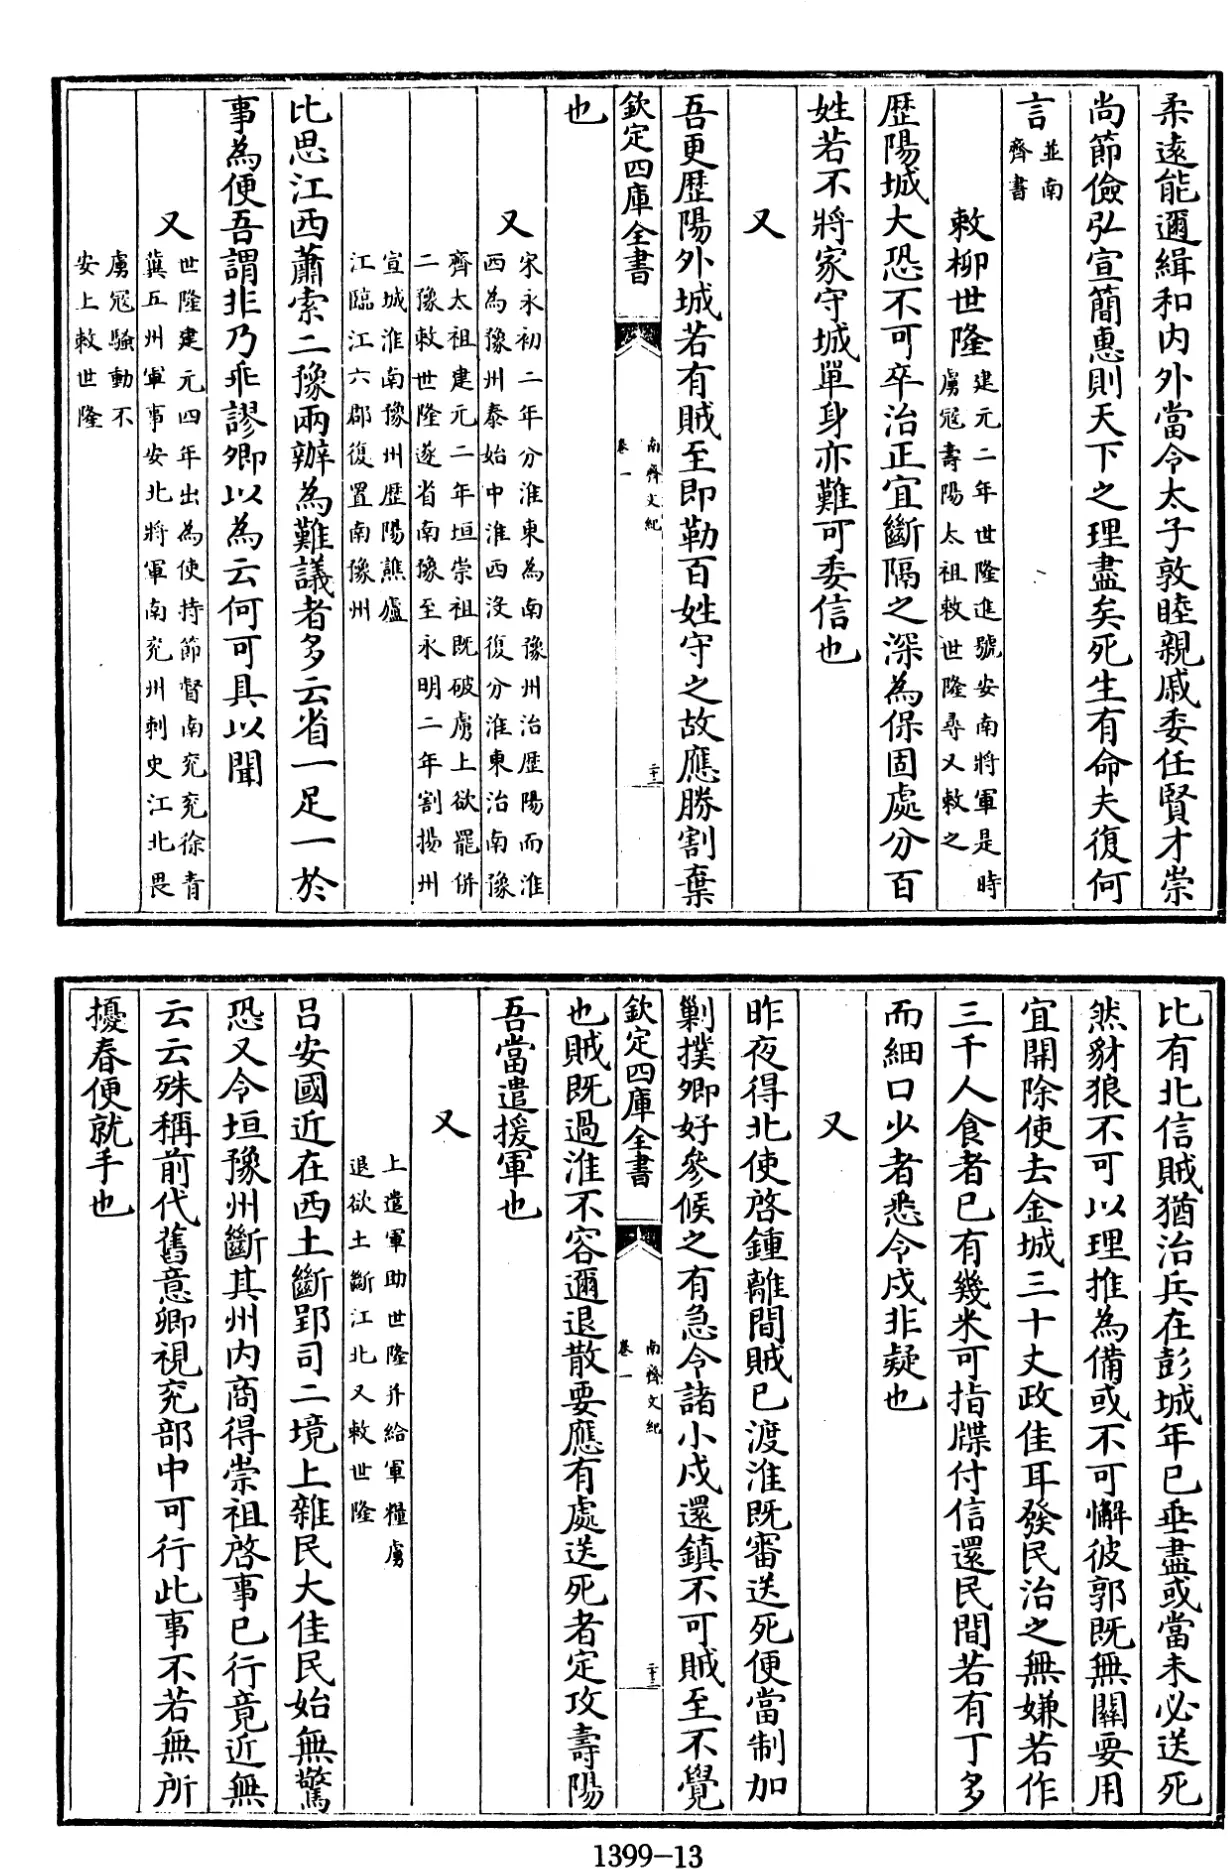 柔遠能邇緝和内外當令太子敦睦親戚委任賢才崇
尚節儉弘宣簡惠則天下之理盡矣死生有命夫復何
言並南
齊書
敕柳世隆建元二年世隆進號安南將軍是時
虜冦壽陽太祖敕世隆尋又敕之
歴陽城大恐不可卒治正宜斷隔之深為保固處分百
姓若不將家守城單身亦難可委信也
又
吾更歴陽外城若有賊至即勒百姓守之故應勝割棄
欽定四庫全書
南齊文紀
卷一
二十二
也
又宋永初二年分淮東為南豫州治歴陽而淮
西為豫州泰始中淮西没復分淮東治南豫
齊太祖建元二年垣崇祖既破虜上欲罷併
二豫敕世隆遂省南豫至永明二年割揚州
宣城淮南豫州歴陽譙廬
江臨江六郡復置南豫州
比思江西蕭索二豫兩辦為難議者多云省一足一於
事為便吾謂非乃乖謬卿以為云何可具以聞
又世隆建元四年出為使持節督南兖兖徐青
冀五州軍事安北將軍南兖州刺史江北畏
虜冦騷動不
安上敕世隆
比有北信賊猶治兵在彭城年已垂盡或當未必送死
然豺狼不可以理推為備或不可懈彼郭既無關要用
宜開除使去金城三十丈政佳耳發民治之無嫌若作
三千人食者已有幾米可指牒付信還民間若有丁多
而細口少者悉令戍非疑也
又
昨夜得北使啓鍾離間賊已渡淮既審送死便當制加
剿撲卿好參候之有急令諸小戍還鎮不可賊至不覺
欽定四庫全書
南齊文紀
卷一
二十三
也賊既過淮不容邇退散要應有處送死者定攻壽陽
吾當遣援軍也
又上遣軍助世隆并給軍糧虜
退欲土斷江北又敕世隆
吕安國近在西土斷郢司二境上雜民大佳民始無驚
恐又令垣豫州斷其州内商得崇祖啓事已行竟近無
云云殊稱前代舊意卿視兖部中可行此事不若無所
擾春便就手也
1399-13